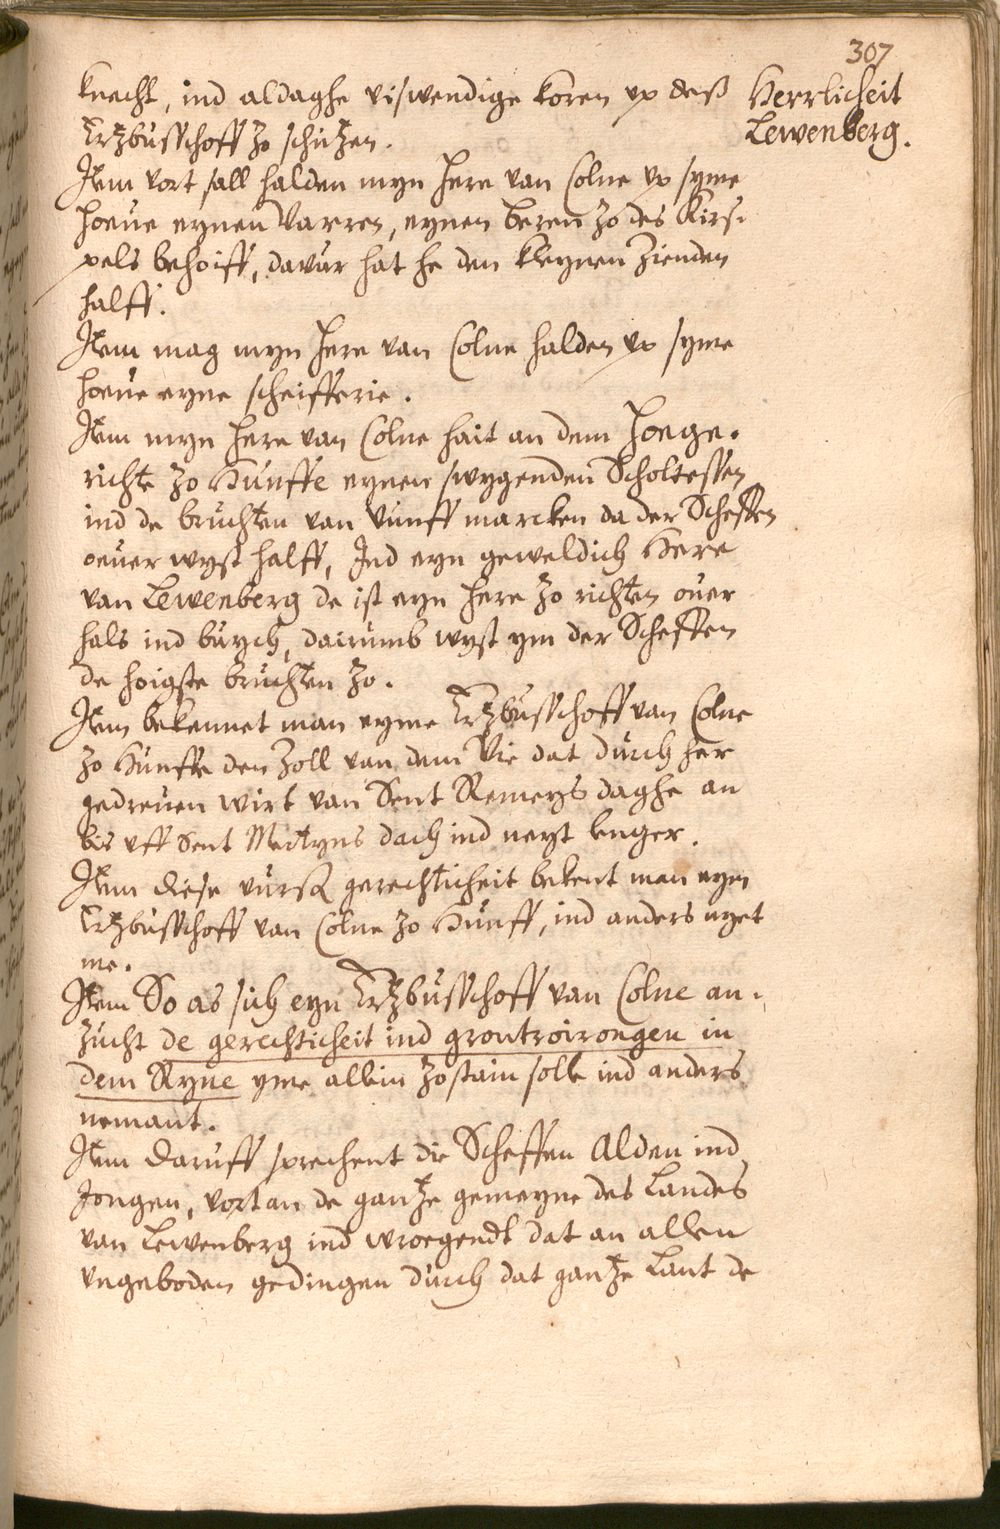 307
Herrlicheit
Lewenberg.
knecht, ind aldaghe viswendige koren vp deß
Ertzbusschoff zo schutzen.
Item vort sall halden myn here van Colne vp syme
hoeue eynen Varren, eynen beren zo des Kirs-
pels behoiff, davur hat he den kleynen Zienden
halff.
Item mag myn here van Colne halden vp syme
hoeue eyne scheifferie.
Item myn here van Colne hait an dem hoege-
richte zo Hunffe eynen swygenden Scholtessen
ind de bruchten van vunff marcken da der Scheffen
oeuer wyst halff, Ind eyn geweldich Here
van Lewenberg de ist eyn here zo richten ouer
hals ind buych, dairumb wyst ym der Scheffen
de hoigste bruchten zo.
Item bekennet man eyme Ertzbusschoff van Colne
zo Hunffe den Zoll van dem Vie dat durch her
gedreuen wirt van Sent Remeys daghe an
bis vff Sent Mertyns dach ind neyt lenger.
Item diese vursz gerechticheit bekent man eym
Ertzbusschoff van Colne zo Hunff, ind anders nyet
me.
Item So as sich eyn Ertzbusschoff van Colne an-
zucht de gerechticheit ind grontroirongen in
dem Ryne yme allein zostain solle ind anders
nemant.
Item daruff sprechent die Scheffen Alden ind
Jongen, vort an de gantze gemeyne des Landes
van Lewenberg ind wroegendt dat an allen
vngeboden gedingen durch dat gantze Lant de